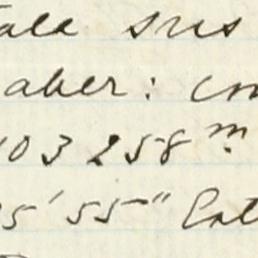 sus
aber:
103 258 m.
25' 55" Lat